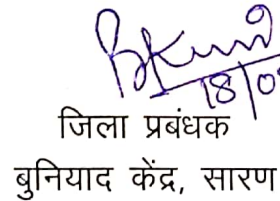 18/0
जिला प्रबंधक
बुनियाद केंद्र, सारण